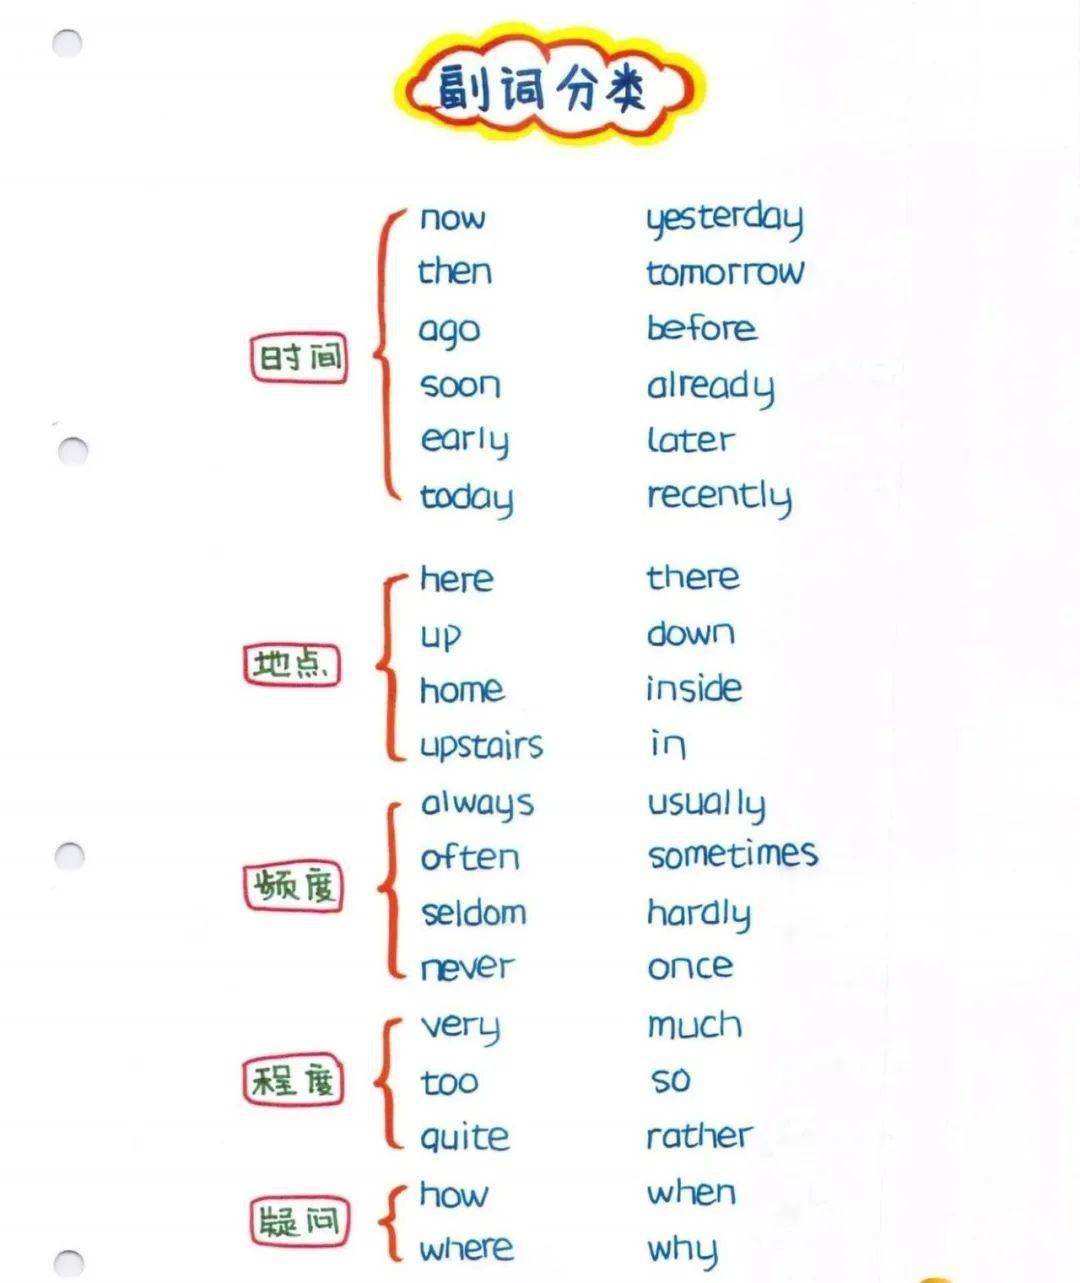 副词分类
时间
now yesterday
then tomorrow
ago before
soon already
early later
today recently
地点
here there
up down
home inside
upstairs in
频度
always usually
often sometimes
seldom hardly
never once
程度
very much
too so
quite rather
疑问
how when
where why